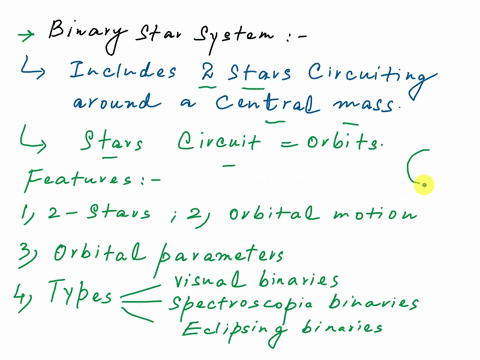 → Binary Star System :-
↳ Includes 2 Stars Circuiting
around a Central mass.
↳ Stars Circuit = Orbits.
Features :-
1, 2 - Stars ; 2, Orbital motion
3, Orbital parameters
4, Types
Visual binaries
Spectroscopia binaries
Eclipsing binaries